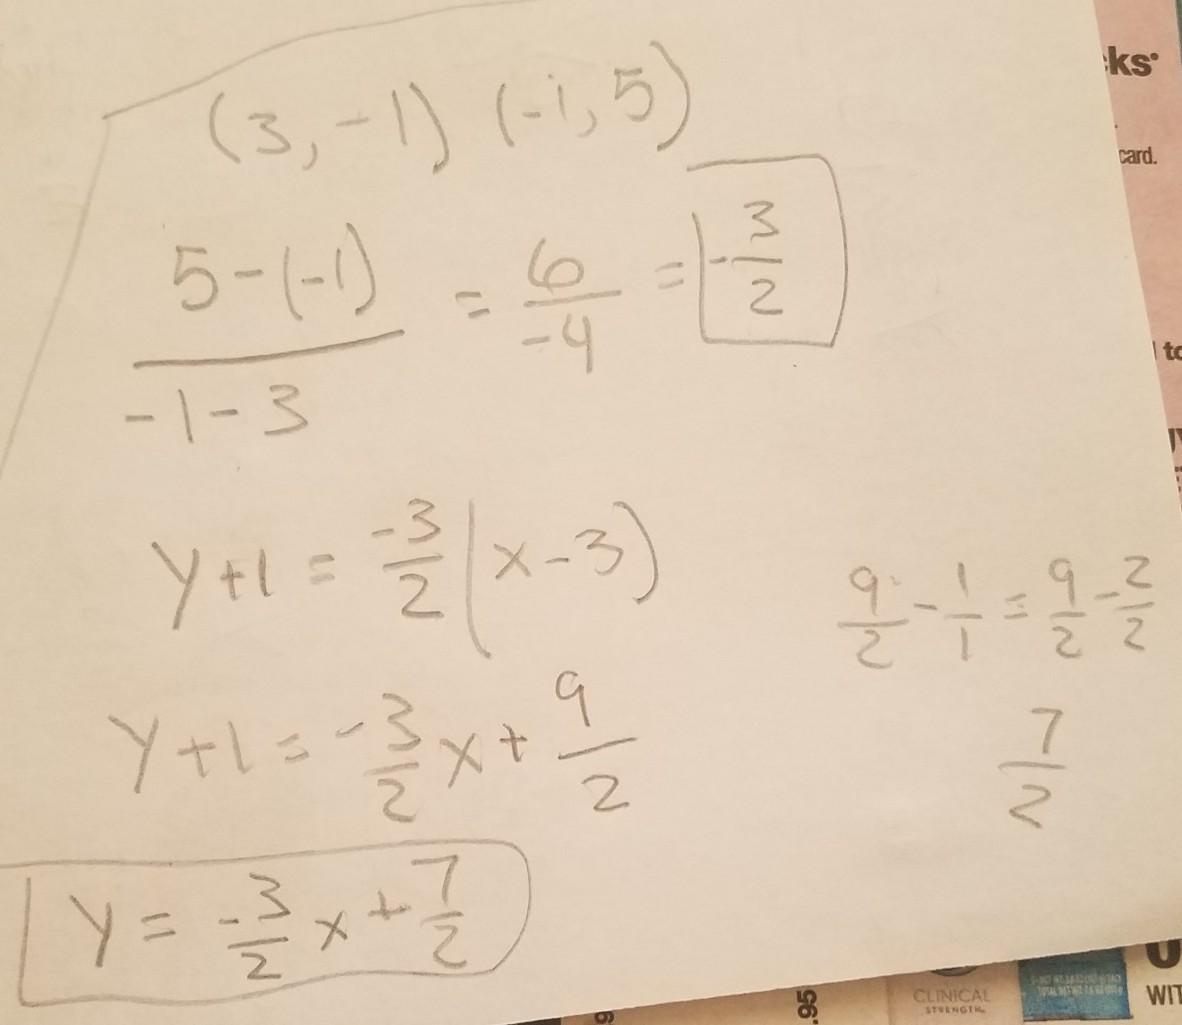 (3, -1) (-1, 5)
5-(-1)
/ -1-3 = 6/-4 = -3/2
y+1 = -3/2 (x-3)
9/2 - 1/1 = 9/2 - 2/2
7/2
y+1 = -3/2 x + 9/2
y = -3/2 x + 7/2
card.
CLINICAL
STRENGTH
.95
WIT